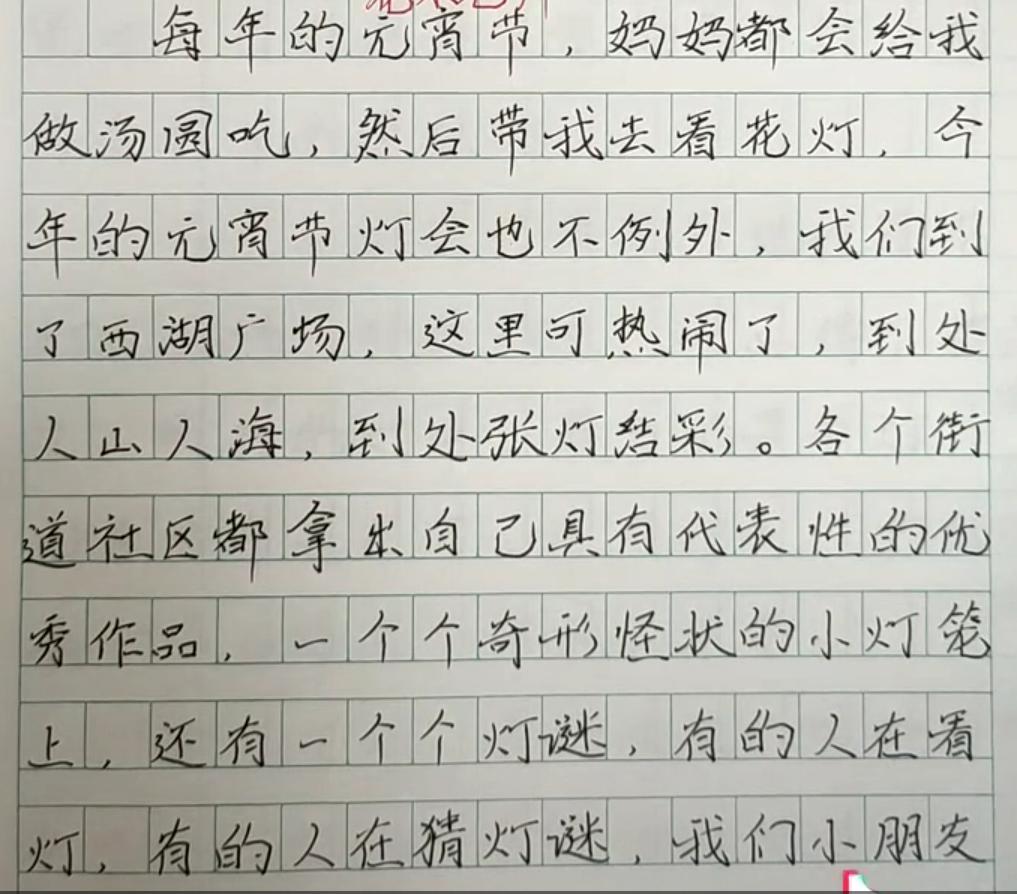 每年的元宵节，妈妈都会给我
做汤圆吃，然后带我去看花灯，今
年的元宵节灯会也不例外，我们到
了西湖广场，这里可热闹了，到处
人山人海，到处张灯结彩。各个街
道社区都拿出自己具有代表性的优
秀作品，一个个奇形怪状的小灯笼
上，还有一个个灯谜，有的人在看
灯，有的人在猜灯谜，我们小朋友